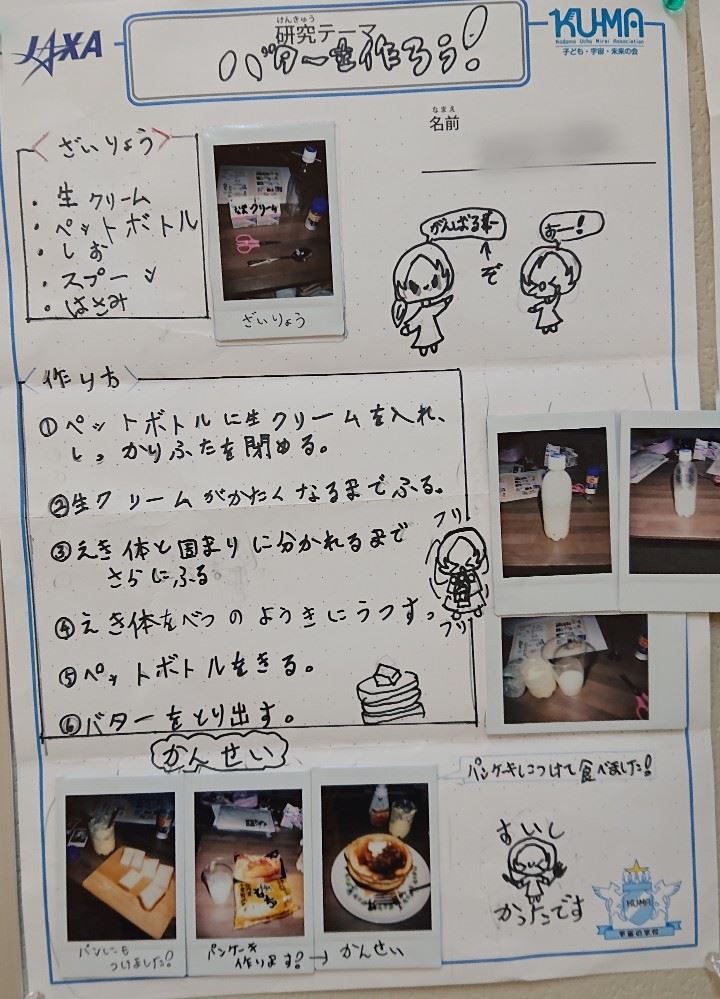 JAXA
けんきゅう
研究テーマ
バターを作ろう!
KU-MA
Kodomo Uchu Mirai Association
子ども・宇宙・未来の会
なまえ
名前
ざいりょう
・生クリーム
・ペットボトル
・しお
・スプーン
・はさみ
ざいりょう
がんばる
ぞ
おー!
作り方
①ペットボトルに生クリームを入れ、
しっかりふたを閉める。
②生クリームがかたくなるまでふる。
③えき体と固まりに分かれるまで
さらにふる。
④えき体をべつのようきにうつす。
⑤ペットボトルをきる。
⑥バターをとり出す。
フリ
フリ
かんせい
パンにも
つけました!
パンケーキ
作ります!→
かんせい
パンケーキにつけて食べました!
すいし
かったです
KUMA
宇宙の学校